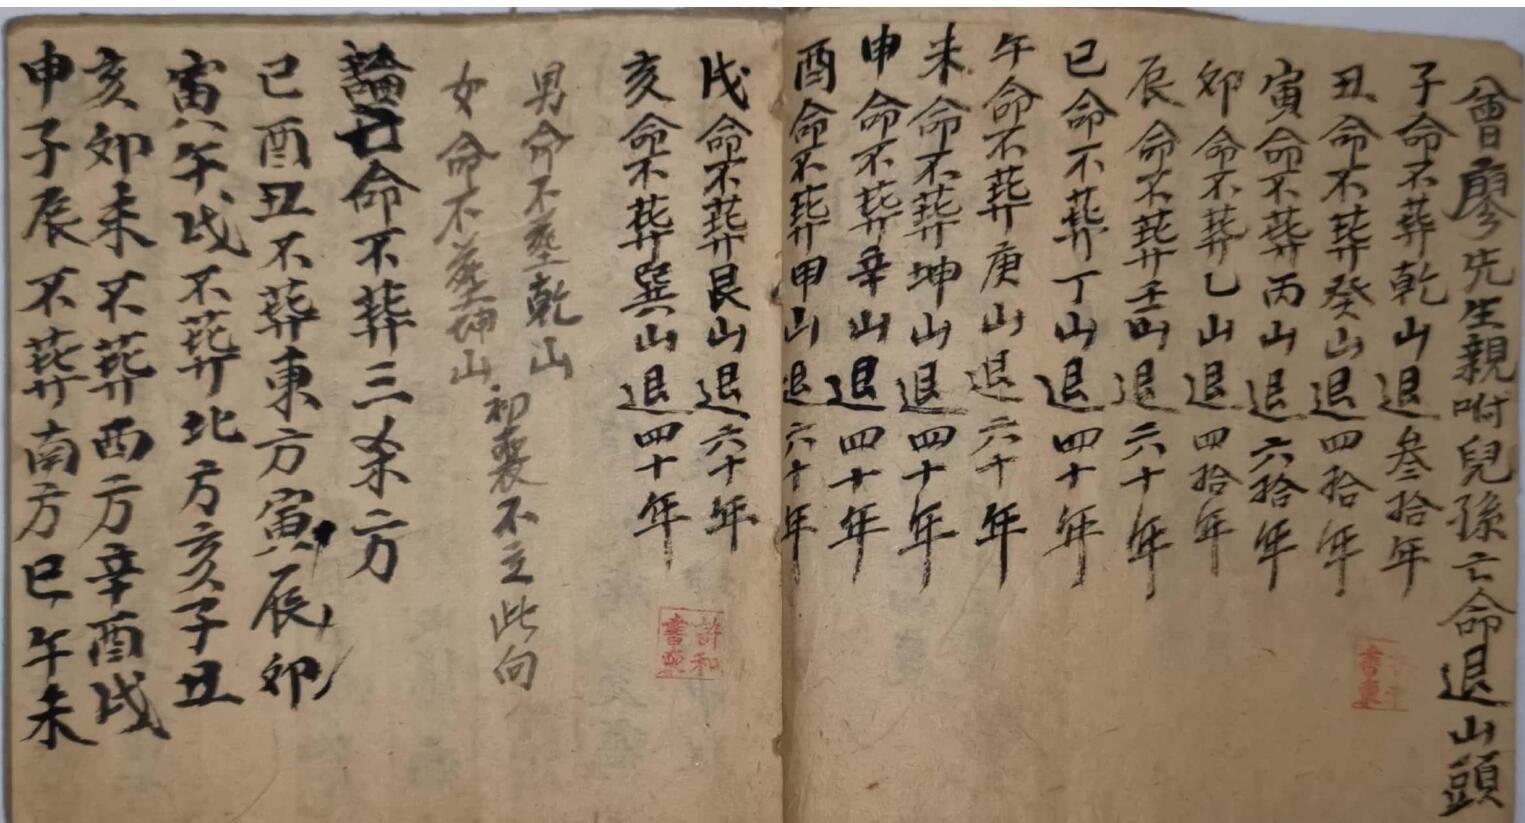 曾廖先生親咐兒孫亡命退山頭
子命不葬乾山退叁拾年
丑命不葬癸山退四拾年
寅命不葬丙山退六拾年
卯命不葬乙山退四拾年
辰命不葬壬山退六十年
巳命不葬丁山退四十年
午命不葬庚山退六十年
未命不葬坤山退四十年
申命不葬辛山退四十年
酉命不葬甲山退六十年
戌命不葬艮山退六十年
亥命不葬巽山退四十年
男命不塟乾山
女命不塟坤山
初喪不立此向
論亡命不葬三杀方
巳酉丑不葬東方寅辰卯
寅午戌不葬北方亥子丑
亥卯未不葬西方辛酉戌
申子辰不葬南方巳午未
許和
書